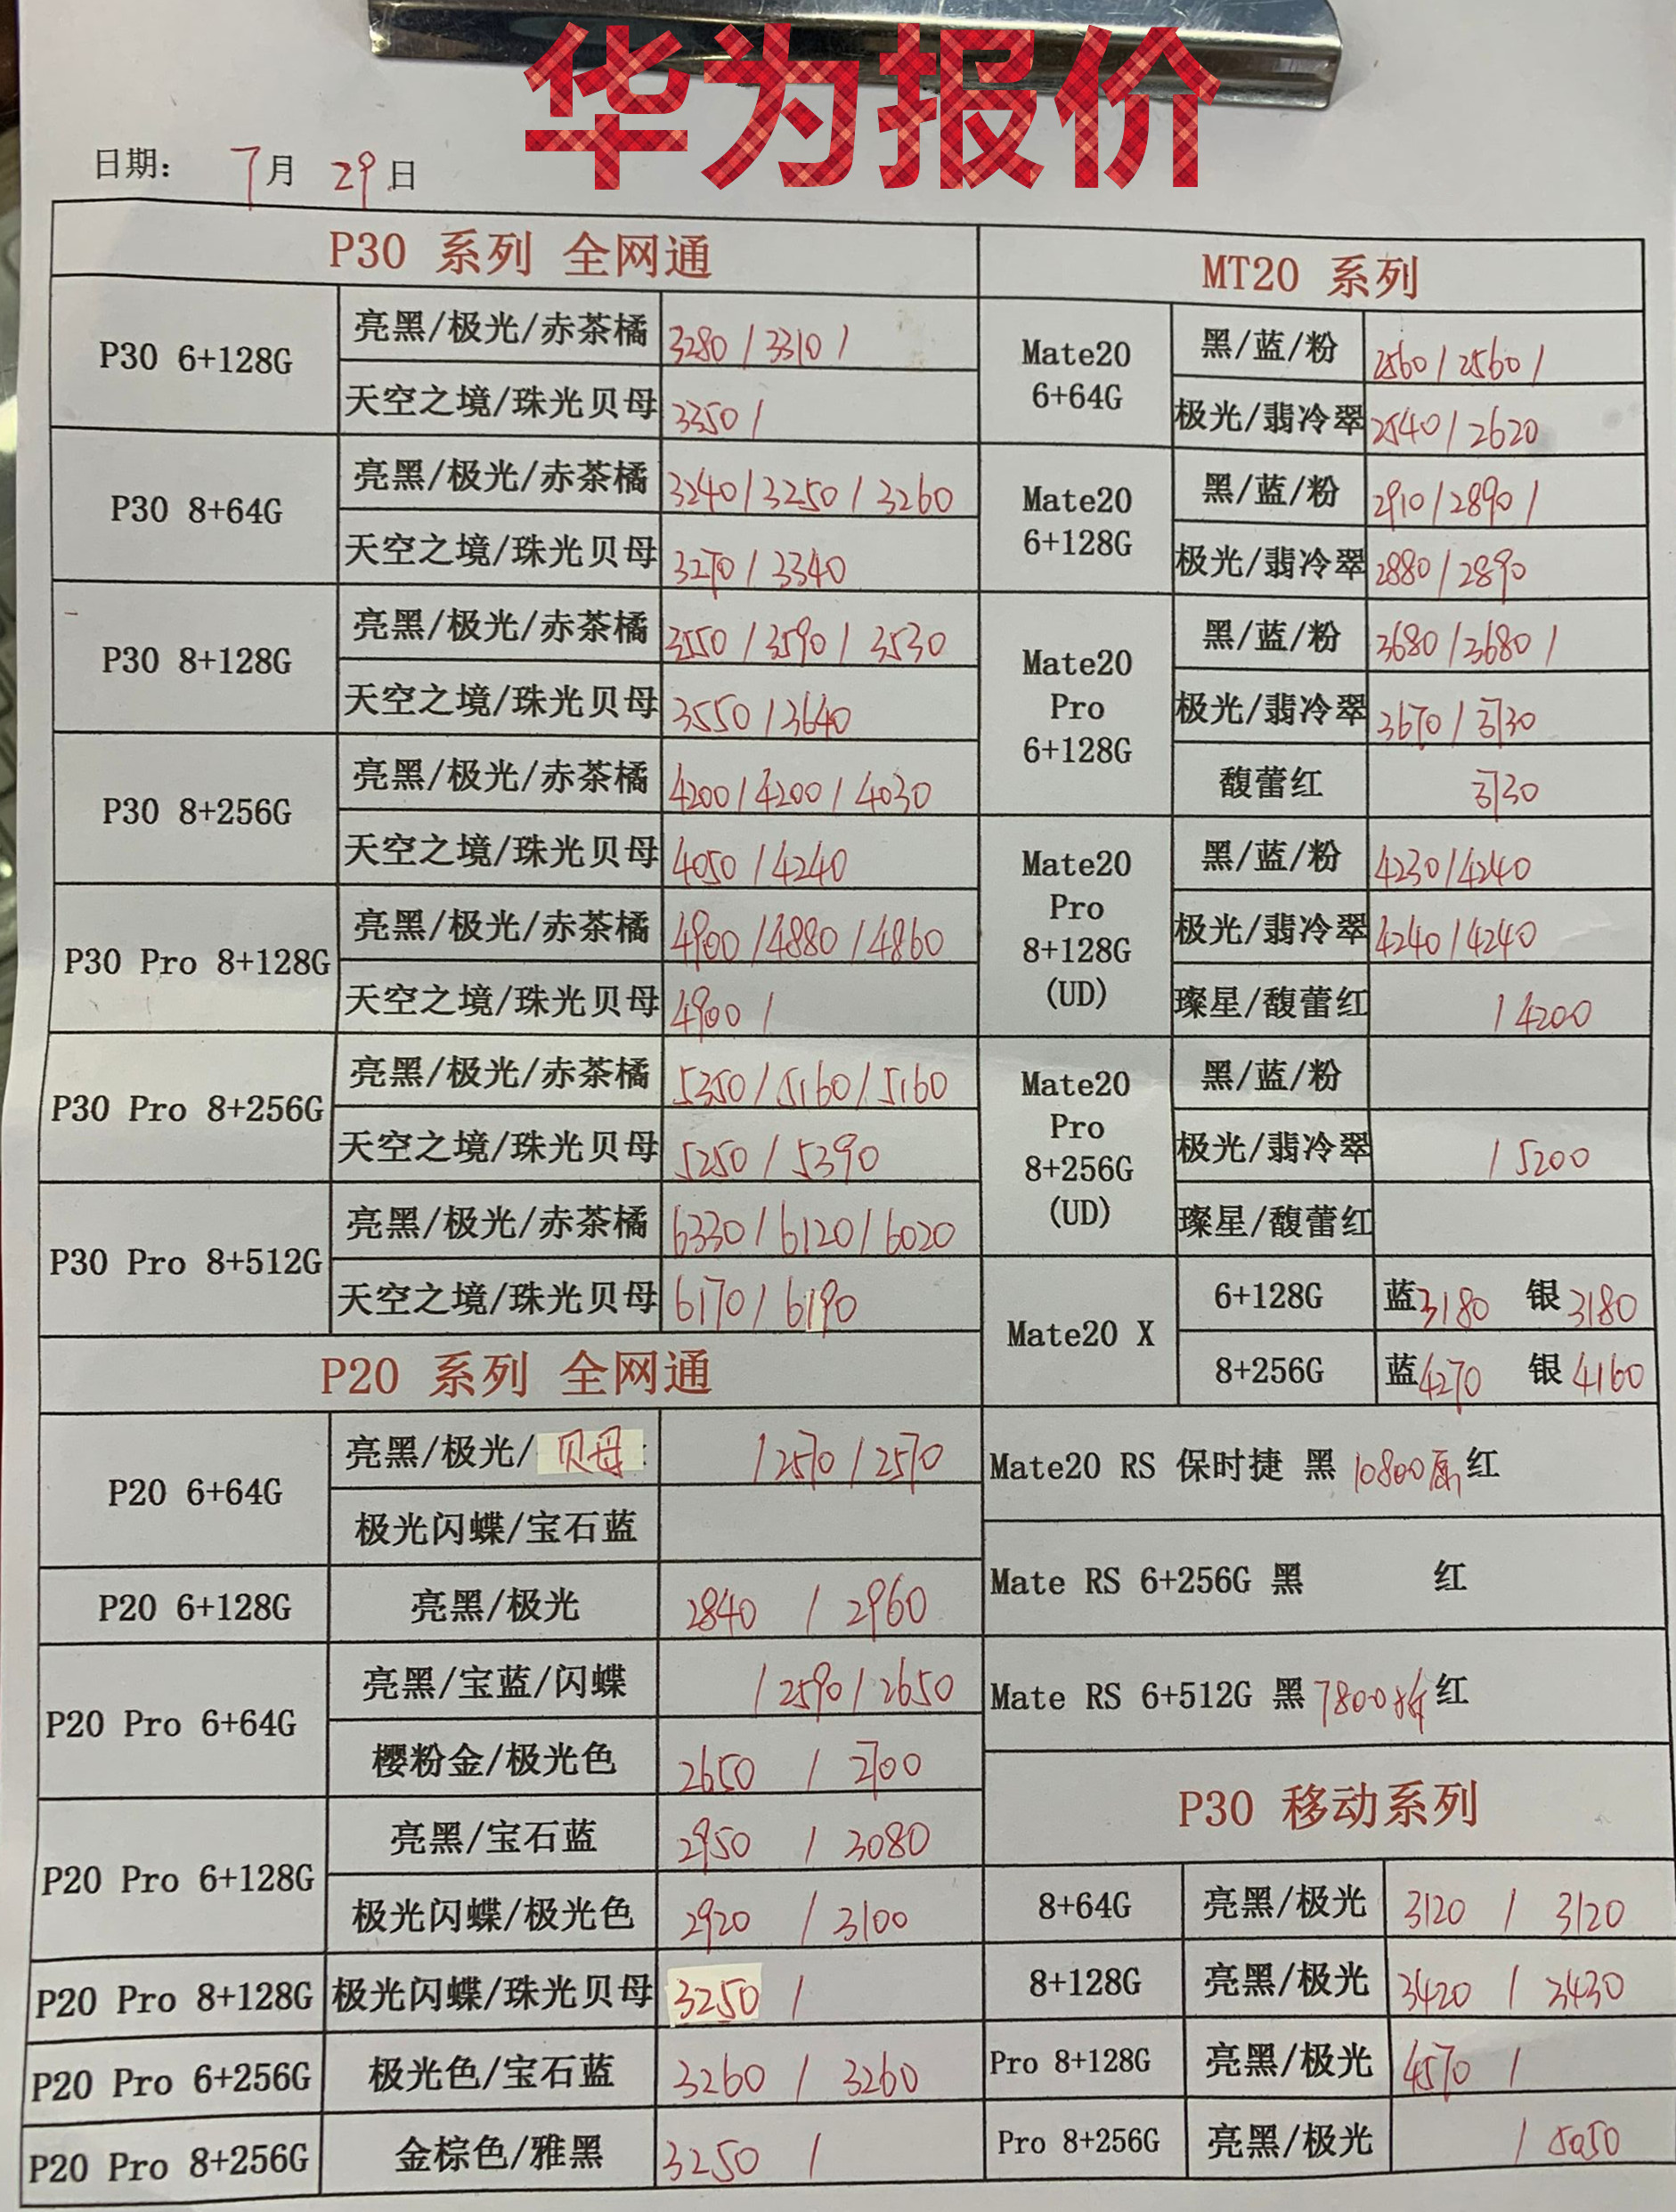 华为报价
日期: 7月 29日
P30 系列 全网通
P30 6+128G
亮黑/极光/赤茶橘 3280 / 3310 /
天空之境/珠光贝母 3350 /
P30 8+64G
亮黑/极光/赤茶橘 3240 / 3250 / 3260
天空之境/珠光贝母 3270 / 3340
P30 8+128G
亮黑/极光/赤茶橘 3550 / 3590 / 3530
天空之境/珠光贝母 3550 / 3640
P30 8+256G
亮黑/极光/赤茶橘 4200 / 4200 / 4030
天空之境/珠光贝母 4050 / 4240
P30 Pro 8+128G
亮黑/极光/赤茶橘 4900 / 4880 / 4860
天空之境/珠光贝母 4900 /
P30 Pro 8+256G
亮黑/极光/赤茶橘 5350 / 5160 / 5160
天空之境/珠光贝母 5250 / 5390
P30 Pro 8+512G
亮黑/极光/赤茶橘 6330 / 6120 / 6020
天空之境/珠光贝母 6170 / 6190
P20 系列 全网通
P20 6+64G
亮黑/极光/贝母 / 2570 / 2570
极光闪蝶/宝石蓝
P20 6+128G 亮黑/极光 2840 / 2960
P20 Pro 6+64G
亮黑/宝蓝/闪蝶 / 2590 / 2650
樱粉金/极光色 2650 / 2700
P20 Pro 6+128G
亮黑/宝石蓝 2950 / 3080
极光闪蝶/极光色 2920 / 3100
P20 Pro 8+128G 极光闪蝶/珠光贝母 3250 /
P20 Pro 6+256G 极光色/宝石蓝 3260 / 3260
P20 Pro 8+256G 金棕色/雅黑 3250 /
MT20 系列
Mate20
6+64G
黑/蓝/粉 2560 / 2560 /
极光/翡冷翠 2540 / 2620
Mate20
6+128G
黑/蓝/粉 2910 / 2890 /
极光/翡冷翠 2880 / 2890
Mate20
Pro
6+128G
黑/蓝/粉 3680 / 3680 /
极光/翡冷翠 3670 / 3730
馥蕾红 3730
Mate20
Pro
8+128G
(UD)
黑/蓝/粉 4230 / 4240
极光/翡冷翠 4240 / 4240
璨星/馥蕾红 / 4200
Mate20
Pro
8+256G
(UD)
黑/蓝/粉
极光/翡冷翠 / 5200
璨星/馥蕾红
Mate20 X
6+128G 蓝3180 银3180
8+256G 蓝4270 银4160
Mate20 RS 保时捷 黑 10800 红
Mate RS 6+256G 黑 红
Mate RS 6+512G 黑 7800 红
P30 移动系列
8+64G 亮黑/极光 3120 / 3120
8+128G 亮黑/极光 3420 / 3430
Pro 8+128G 亮黑/极光 4570 /
Pro 8+256G 亮黑/极光 / 5050